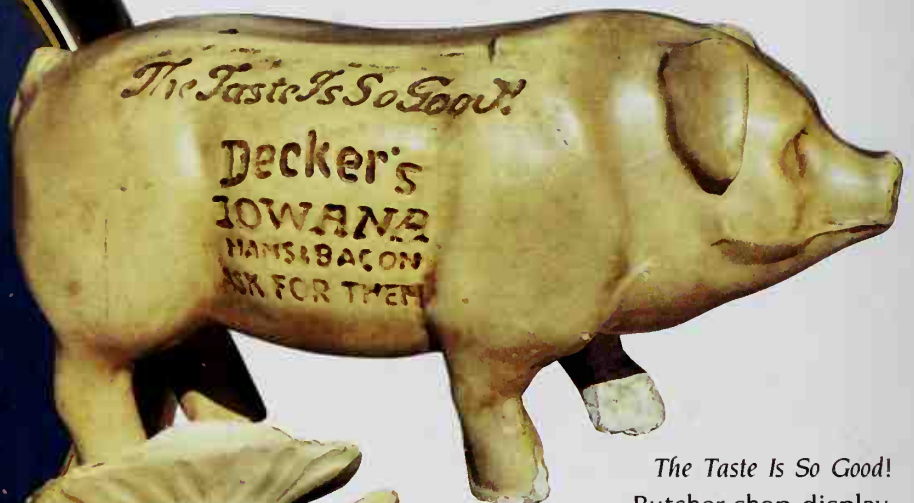 The Taste Is So Good!
Decker's
IOWANA
HAMS & BACON
ASK FOR THEM
The Taste Is So Good!
Butcher shop display